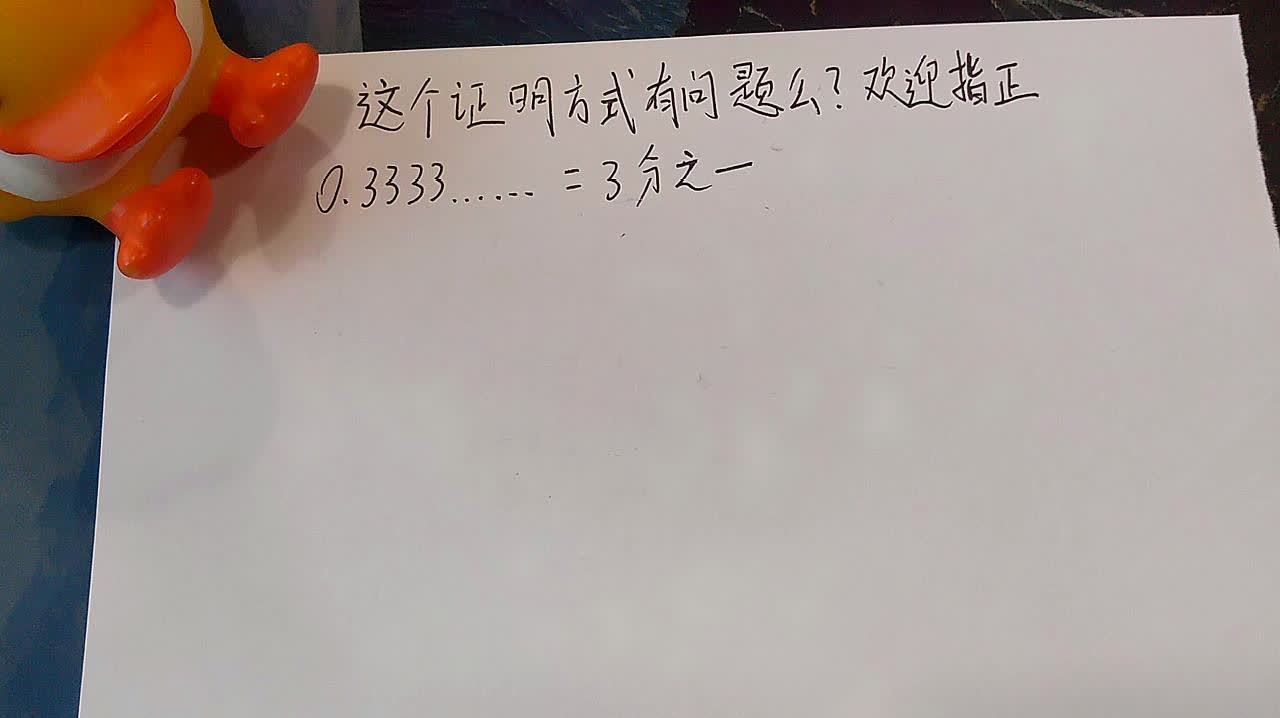 这个证明方式有问题么?欢迎指正
0.3333...... = 3分之一